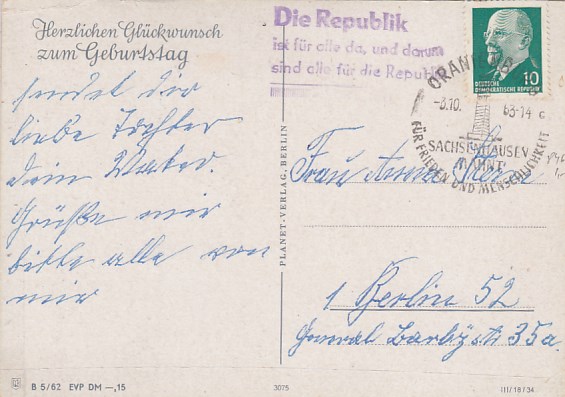 Herzlichen Glückwunsch
zum Geburtstag
sendet dir
liebe Tochter
dein Vater.
Grüße mir
bitte alle von
mir
B 5/62 EVP DM —,15
PLANET-VERLAG, BERLIN
3075
III/18/34
Die Republik
ist für alle da, und darum
sind alle für die Republik
DEUTSCHE
DEMOKRATISCHE REPUBLIK
10
ORANIENB
-8.10. 63-14
c
SACHSENHAUSEN
MAHNT
FÜR FRIEDEN UND MENSCHLICHKEIT
Frau
1 Berlin 52
General Barbystr 35a.